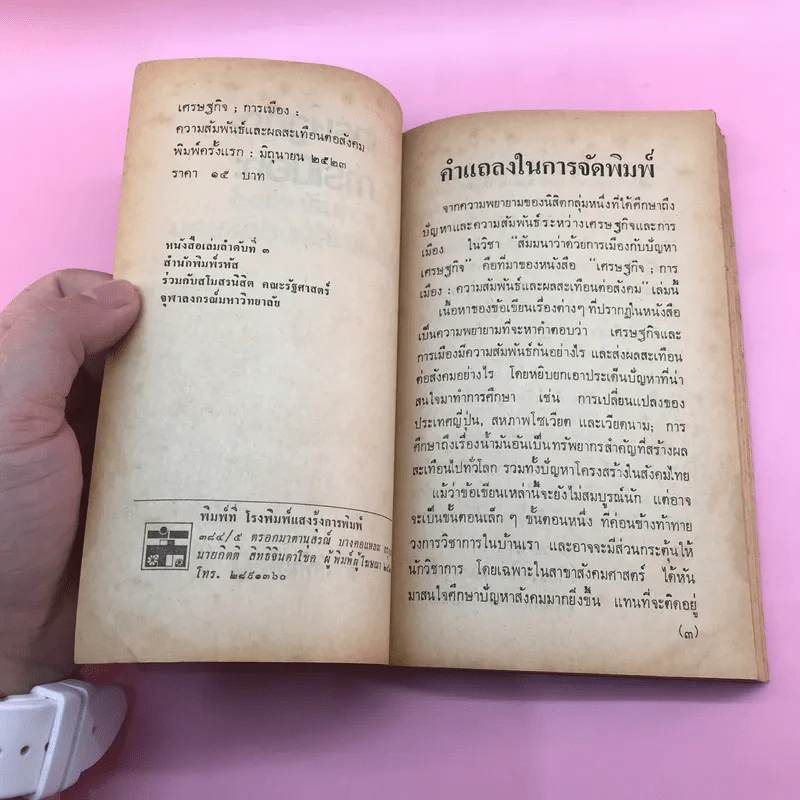 เศรษฐกิจ ; การเมือง :
ความสัมพันธ์และผลสะเทือนต่อสังคม
พิมพ์ครั้งแรก : มิถุนายน ๒๕๒๓
ราคา ๑๕ บาท
หนังสือเล่มลำดับที่ ๓
สำนักพิมพ์รหัส
ร่วมกับสโมสรนิสิต คณะรัฐศาสตร์
จุฬาลงกรณ์มหาวิทยาลัย
พิมพ์ที่ โรงพิมพ์แสงรุ้งการพิมพ์
๓๘๔/๕ ตรอกมาตานุสรณ์ บางคอแหลม
นายกิตติ สิทธิจินดาโชค ผู้พิมพ์ผู้โฆษณา
โทร. ๒๘๙๑๓๖๐
คำแถลงในการจัดพิมพ์
จากความพยายามของนิสิตกลุ่มหนึ่งที่ได้ศึกษาถึง
ปัญหาและความสัมพันธ์ระหว่างเศรษฐกิจและการ
เมือง ในวิชา "สัมมนาว่าด้วยการเมืองกับปัญหา
เศรษฐกิจ" คือที่มาของหนังสือ "เศรษฐกิจ ; การ
เมือง : ความสัมพันธ์และผลสะเทือนต่อสังคม" เล่มนี้
เนื้อหาของข้อเขียนเรื่องต่างๆ ที่ปรากฏในหนังสือ
เป็นความพยายามที่จะหาคำตอบว่า เศรษฐกิจและ
การเมืองมีความสัมพันธ์กันอย่างไร และส่งผลสะเทือน
ต่อสังคมอย่างไร โดยหยิบยกเอาประเด็นปัญหาที่น่า
สนใจมาทำการศึกษา เช่น การเปลี่ยนแปลงของ
ประเทศญี่ปุ่น, สหภาพโซเวียต และเวียดนาม; การ
ศึกษาถึงเรื่องน้ำมันอันเป็นทรัพยากรสำคัญที่สร้างผล
สะเทือนไปทั่วโลก รวมทั้งปัญหาโครงสร้างในสังคมไทย
แม้ว่าข้อเขียนเหล่านี้จะยังไม่สมบูรณ์นัก แต่อาจ
จะเป็นขั้นตอนเล็ก ๆ ขั้นตอนหนึ่ง ที่ค่อนข้างท้าทาย
วงการวิชาการในบ้านเรา และอาจจะมีส่วนกระตุ้นให้
นักวิชาการ โดยเฉพาะในสาขาสังคมศาสตร์ ได้หัน
มาสนใจศึกษาปัญหาสังคมมากยิ่งขึ้น แทนที่จะติดอยู่
(๓)